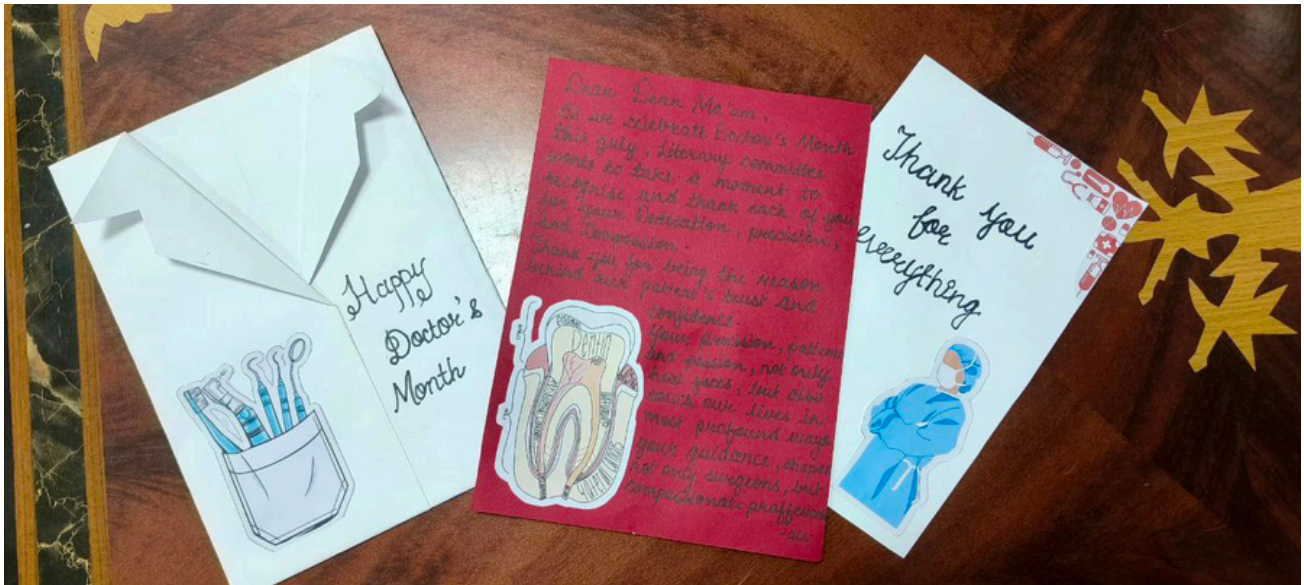 Happy
Doctor's
Month
Dear Dean Ma'am,
As we celebrate Doctor's Month
this July, Literary committee
wants to take a moment to
recognise and thank each of you
for your Dedication, precision,
and Compassion.
Thank you for being the reason
behind our patient's trust and
confidence.
Your precision, patience
and passion, not only
heal faces, but also
touch our lives in
most profound ways
your guidance, shapes
not only surgeons, but
compassionate
Dentin
Thank you
for
everything